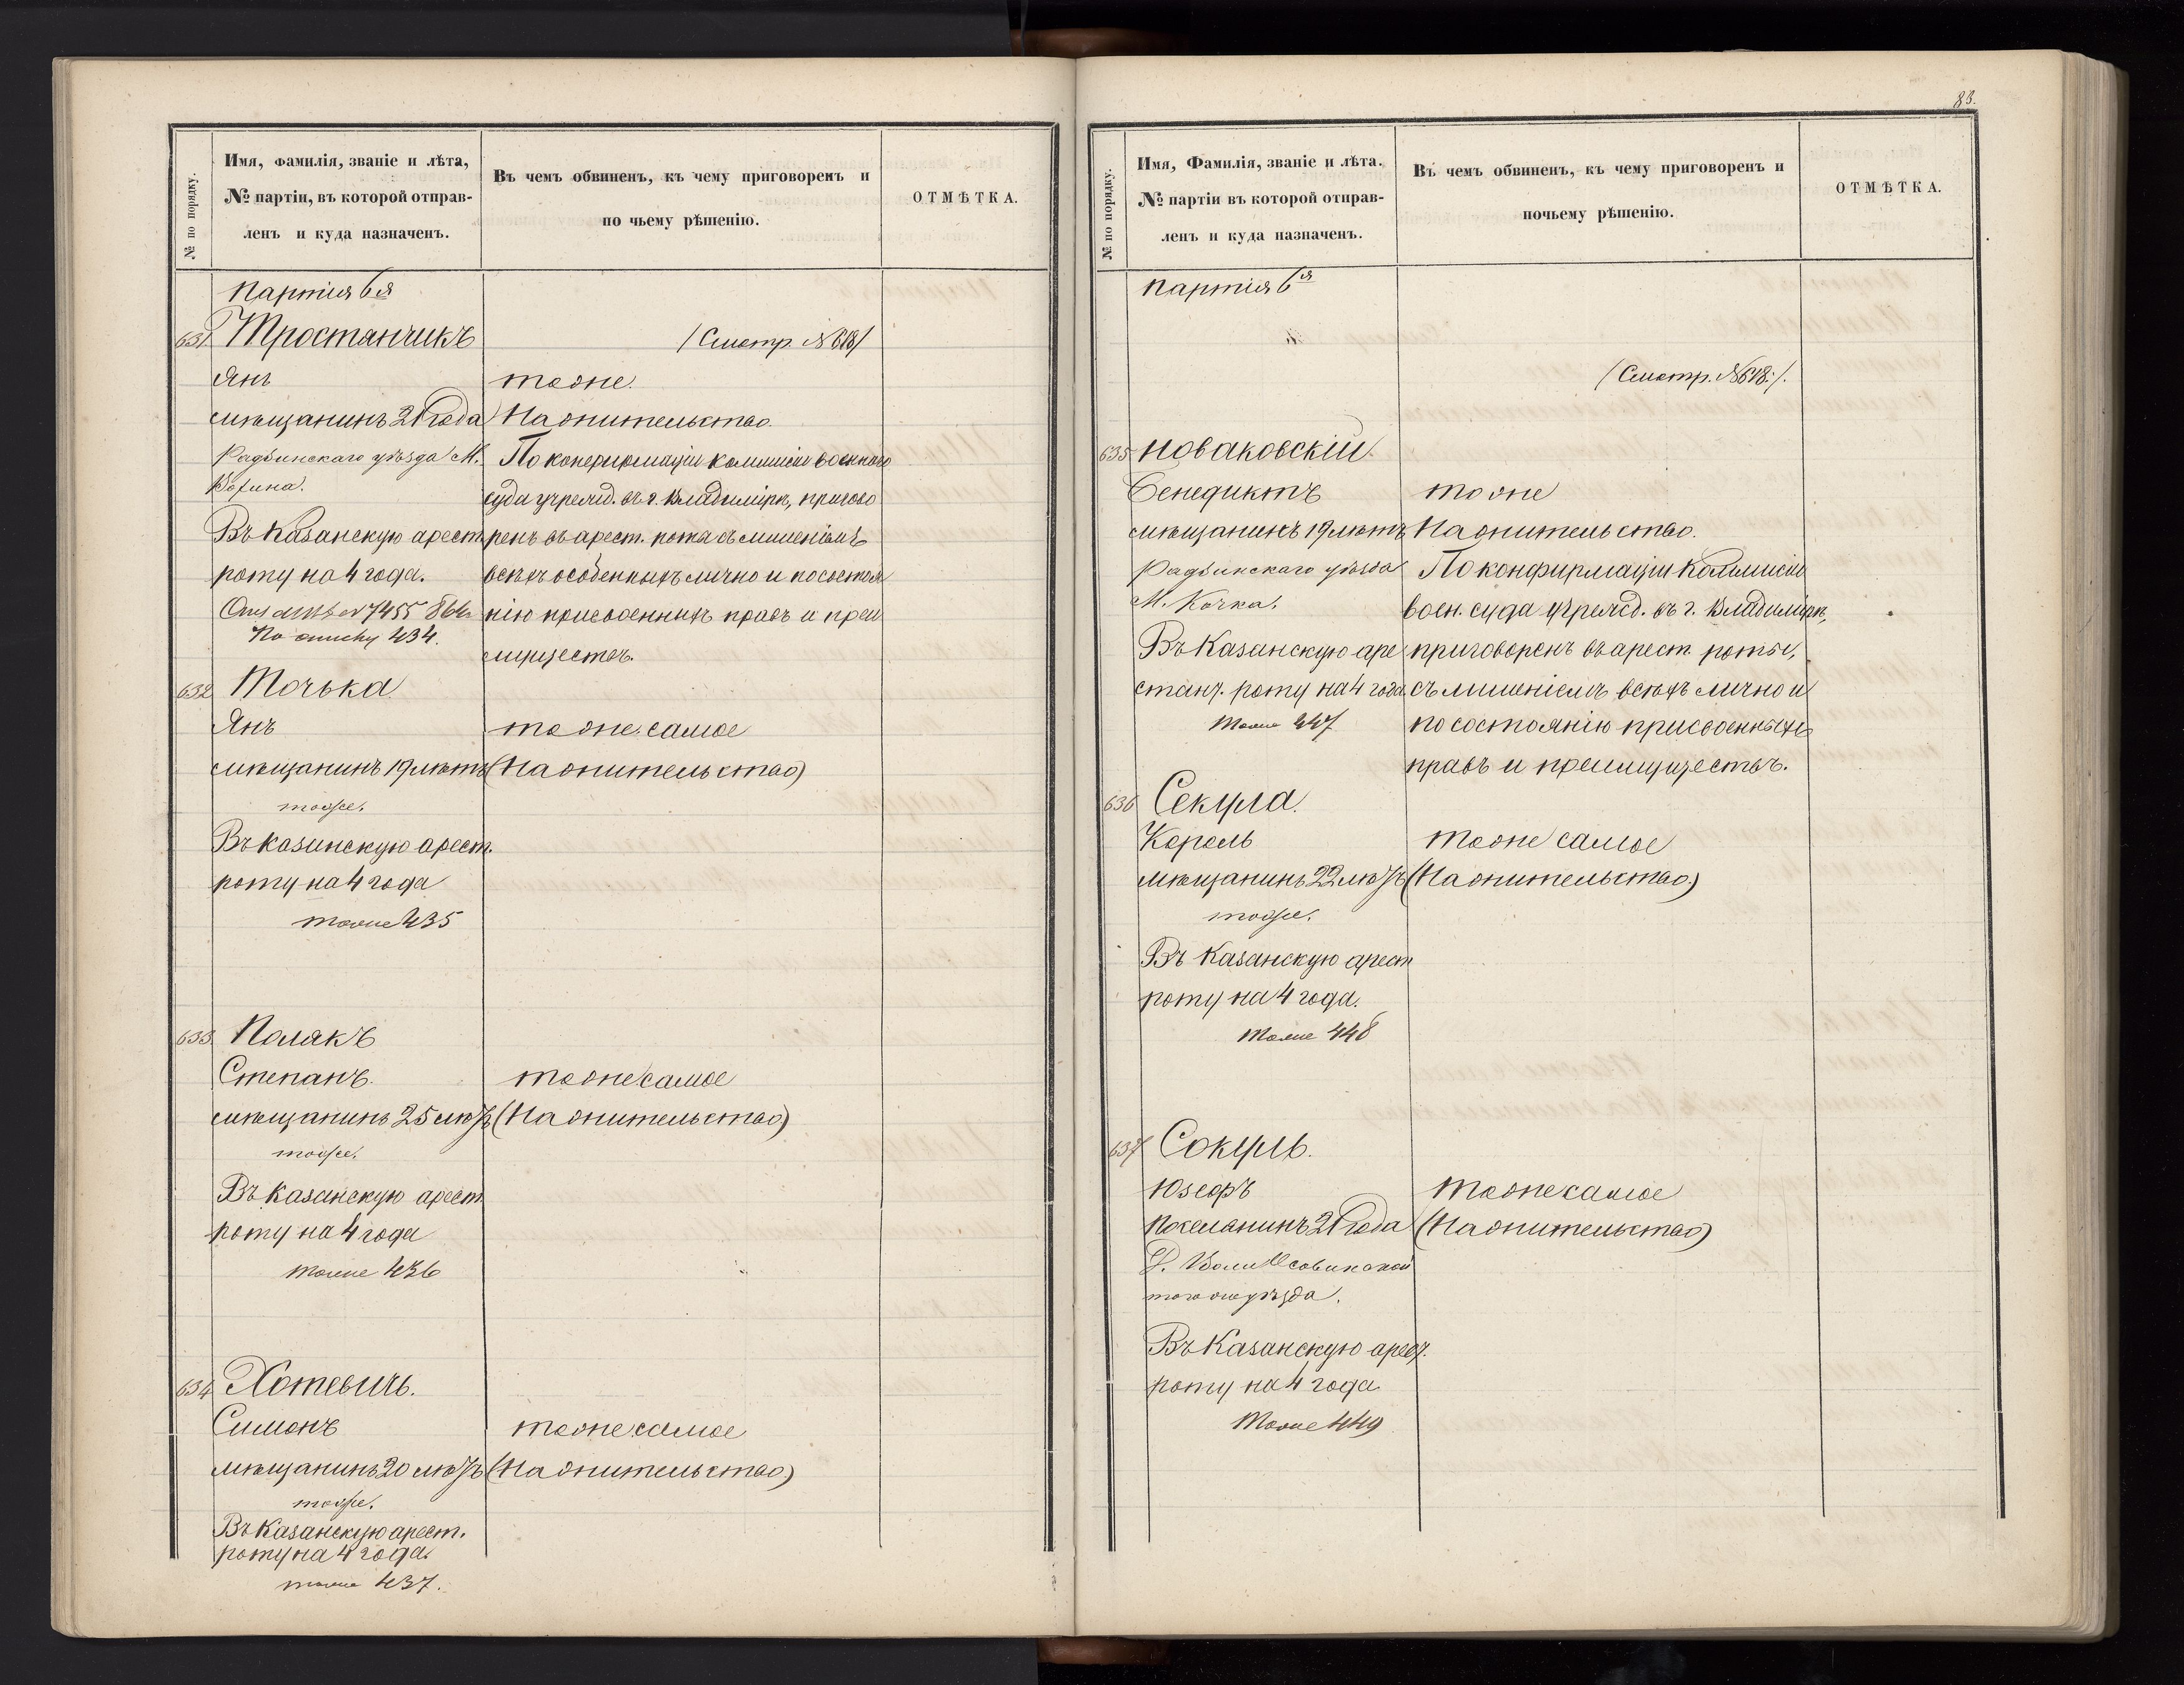 № по порядку.
Имя, Фамилія, званіе и лѣта,
№ партіи, въ которой отправ-
ленъ и куда назначенъ.
Въ чемъ обвиненъ, къ чему приговоренъ и
по чьему рѣшенію.
ОТМѢТКА.
Партія 6я
631 Тростанчикъ
/Смотр. №618/
Янъ
тоже.
мѣщанинъ 21 года
На жительство.
Радзинскаго уѣзда М.
По конфирмаціи коммисіи военнаго
суда учрежд. въ г. Владимірѣ, пригово
Въ Казанскую арест.
ренъ въ арест. роты съ лишеніемъ
роту на 4 года.
всѣхъ особенныхъ лично и по состоя
7455
нію присвоенныхъ правъ и преи
По списку 434.
муществъ.
632 Точька
Янъ
тоже самое
мѣщанинъ 19 лѣтъ
(На жительство)
тоже.
Въ Казанскую арест.
роту на 4 года
тоже 435
633 Полякъ
Степанъ.
тоже самое
мѣщанинъ 25 лѣтъ
(На жительство)
тоже.
Въ Казанскую арест
роту на 4 года
тоже 436
634 Хотевичъ.
Симонъ
тоже самое
мѣщанинъ 20 лѣтъ
(На жительство)
тоже.
Въ Казанскую арест.
роту на 4 года.
тоже 437.
83.
№ по порядку.
Имя, Фамилія, званіе и лѣта.
№ партіи въ которой отправ-
ленъ и куда назначенъ.
Въ чемъ обвиненъ, къ чему приговоренъ и
почьему рѣшенію.
ОТМѢТКА.
Партія 6я
/Смотр. №618:/.
635 Новаковскій.
Бенедиктъ
тоже
мѣщанинъ 19 лѣтъ
На жительство.
Радзинскаго уѣзда
По конфирмаціи Коммисіи
М. Коцка.
воен. суда учрежд. въ г. Владимірѣ,
Въ Казанскую аре
приговоренъ въ арест. роты,
стант. роту на 4 года.
съ лишеніемъ всѣхъ лично и
тоже 447
по состоянію присвоенныхъ
правъ и преимуществъ.
636 Секула.
Кароль
тоже самое
мѣщанинъ 22 лѣтъ
(На жительство.)
тоже.
Въ Казанскую арест
роту на 4 года.
тоже 448
637 Сокулъ.
Юзефъ
тоже самое
Поселанинъ 21 года
(На жительство)
Д. Воли Осовинской
того же уѣзда.
Въ Казанскую арест.
роту на 4 года.
тоже 449